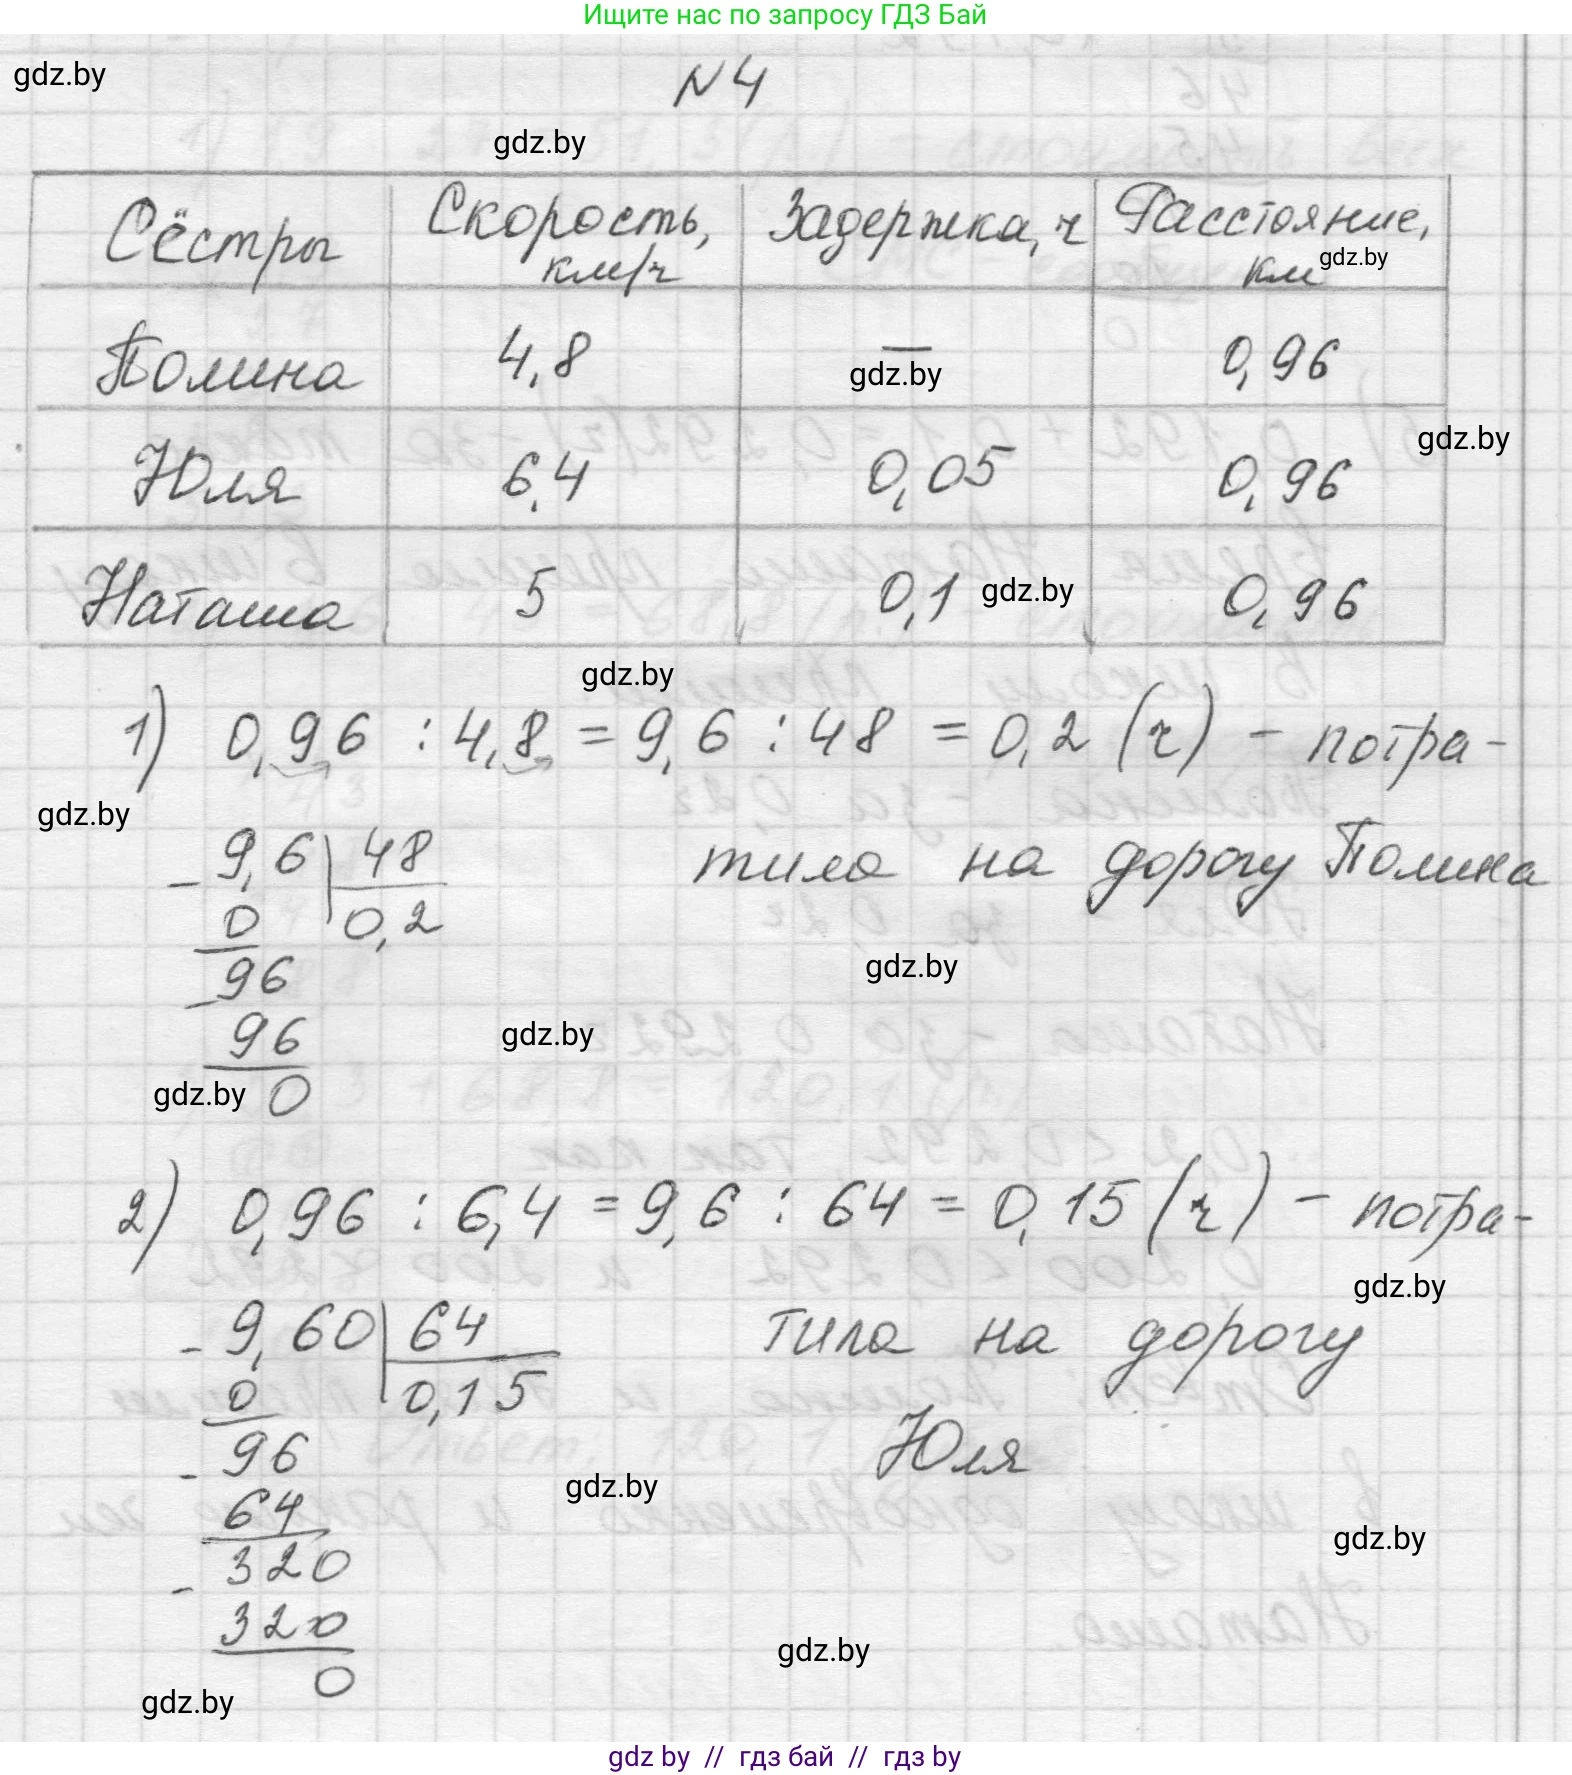 Ищите нас по запросу ГДЗ Бай
gdz.by
N4
gdz.by
Сёстры Скорость, км/ч Задержка, ч Расстояние, км
gdz.by
Полина 4,8 — 0,96
gdz.by
gdz.by
Юля 6,4 0,05 0,96
Наташа 5 0,1 0,96
gdz.by
gdz.by
1) 0,96 : 4,8 = 9,6 : 48 = 0,2 (ч) - потра-
gdz.by
тила на дорогу Полина
- 9,6 | 48
0 0,2
- 96
gdz.by
96
gdz.by
gdz.by
0
2) 0,96 : 6,4 = 9,6 : 64 = 0,15 (ч) - потра-
gdz.by
тила на дорогу
Юля
- 9,60 | 64
0 0,15
- 96
gdz.by
64
- 320
gdz.by
320
gdz.by
0
gdz.by
gdz by // гдз бай // гдз by